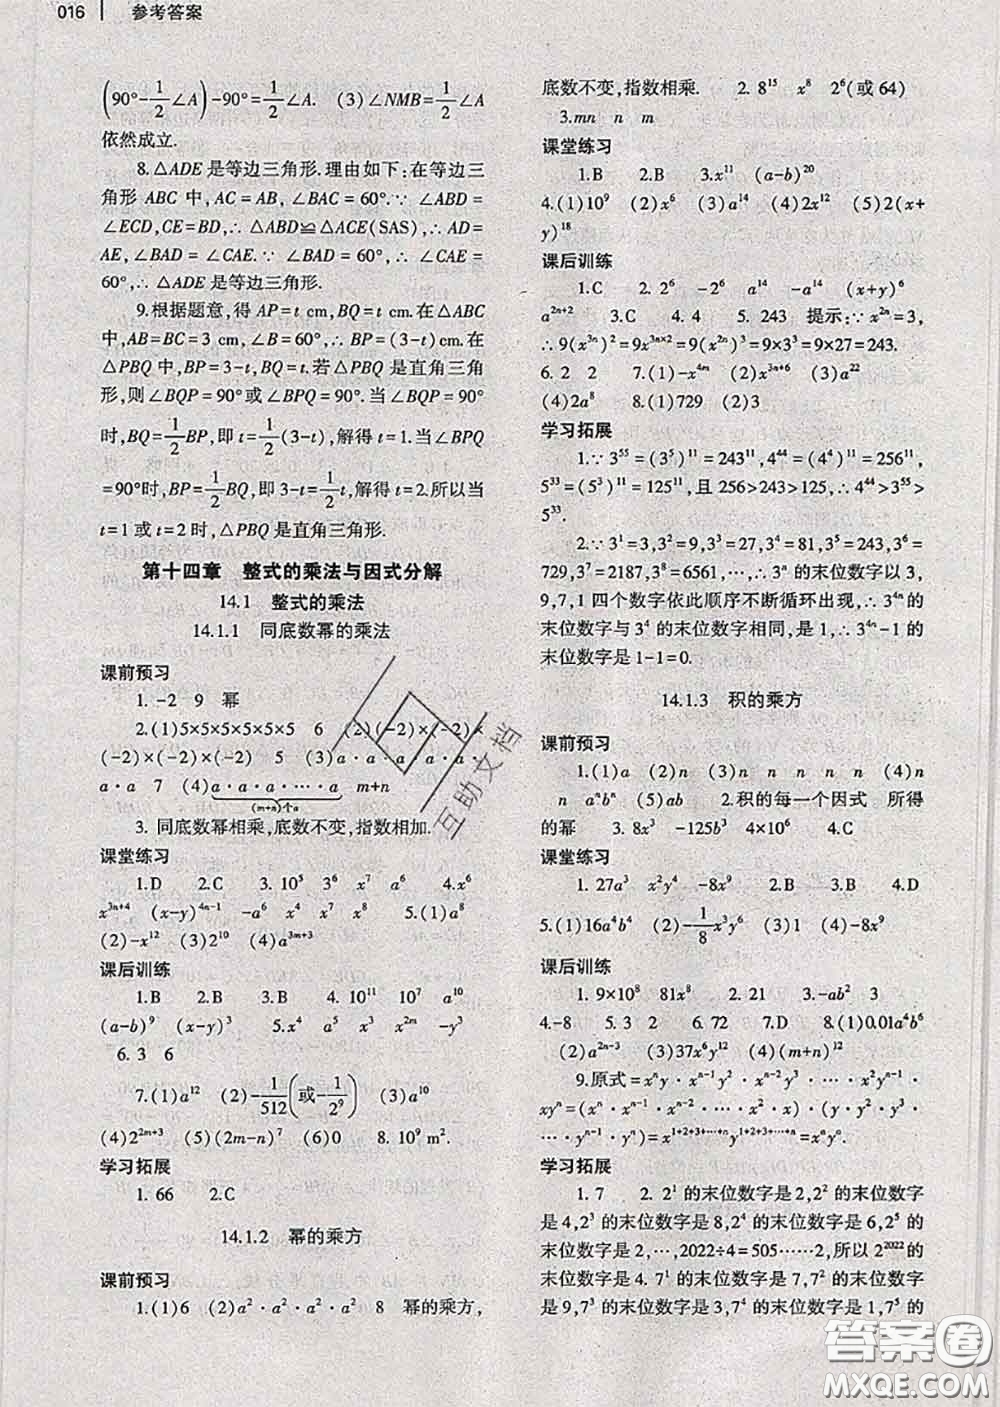 016 参考答案
(90°-1/2∠A)-90°=1/2∠A. (3)∠NMB=1/2∠A
依然成立.
8.△ADE是等边三角形.理由如下:在等边三
角形ABC中,AC=AB,∠BAC=60°.∵∠ABD=
∠ECD,CE=BD,∴△ABD≌△ACE(SAS),∴AD=
AE,∠BAD=∠CAE.∵∠BAD=60°,∴∠CAE=
60°,∴△ADE是等边三角形.
9.根据题意,得AP=t cm,BQ=t cm.在△ABC
中,AB=BC=3 cm,∠B=60°,∴BP=(3-t)cm.在
△PBQ中,BP=3-t,BQ=t.若△PBQ是直角三角
形,则∠BQP=90°或∠BPQ=90°.当∠BQP=90°
时,BQ=1/2BP,即t=1/2(3-t),解得t=1.当∠BPQ
=90°时,BP=1/2BQ,即3-t=1/2t,解得t=2.所以当
t=1或t=2时,△PBQ是直角三角形.
第十四章 整式的乘法与因式分解
14.1 整式的乘法
14.1.1 同底数幂的乘法
课前预习
1.-2 9 幂
2.(1)5×5×5×5×5×5 6 (2)(-2)×(-2)×
(-2)×(-2)×(-2) 5 (3)a·a·a·a·a·
a·a 7 (4)a·a·a·…·a m+n
(m+n)个a
3. 同底数幂相乘,底数不变,指数相加.
课堂练习
1.D 2.C 3.10⁵ 3⁶ x⁷ a⁶ 4.x⁶
x³ⁿ⁺⁴ (x-y)⁴ⁿ⁻¹ -a⁶ x⁴ x⁷ x⁸ 5.(1)a⁸
(2)-x¹² (3)2¹⁰ (4)a³ᵐ⁺³
课后训练
1.B 2.B 3.B 4.10¹¹ 10⁷ a¹⁰
(a-b)⁹ (x-y)³ 5.x⁴ a⁵ x³ x²ᵐ -y³
6. 3 6
7.(1)a¹² (2)-1/512(或-1/2⁹) (3)a¹⁰
(4)2²ᵐ⁺³ (5)(2m-n)⁷ (6)0 8. 10⁹ m².
学习拓展
1. 66 2.C
14.1.2 幂的乘方
课前预习
1.(1)6 (2)a²·a²·a²·a² 8 幂的乘方,
底数不变,指数相乘. 2. 8¹⁵ x⁸ 2⁶(或64)
3.mn n m
课堂练习
1.B 2.B 3.x¹¹ (a-b)²⁰
4.(1)10⁹ (2)x⁶ (3)a¹⁴ (4)2x¹² (5)2(x+
y)¹⁸
课后训练
1.C 2. 2⁶ -2⁶ a¹⁴ -a¹⁴ (x+y)⁶
a²ⁿ⁺² 3.C 4. 4 5. 243 提示:∵x²ⁿ=3,
∴9(x³ⁿ)²=9x³ⁿˣ²=9(x²ⁿ)³=9×3³=9×27=243.
6. 2 2 7.(1)-x⁴ᵐ (2)x³ⁿ⁺⁶ (3)a²²
(4)2a⁸ 8.(1)729 (2)3
学习拓展
1.∵3⁵⁵=(3⁵)¹¹=243¹¹,4⁴⁴=(4⁴)¹¹=256¹¹,
5³³=(5³)¹¹=125¹¹,且256>243>125,∴4⁴⁴>3⁵⁵>
5³³.
2.∵3¹=3,3²=9,3³=27,3⁴=81,3⁵=243,3⁶=
729,3⁷=2187,3⁸=6561,…,∴3ⁿ的末位数字以3,
9,7,1四个数字依此顺序不断循环出现,∴3⁴ⁿ的
末位数字与3⁴的末位数字相同,是1,∴3⁴ⁿ-1的
末位数字是1-1=0.
14.1.3 积的乘方
课前预习
1.(1)a (2)n (3)n n n n n (4)n
n aⁿbⁿ (5)ab 2.积的每一个因式 所得
的幂 3. 8x³ -125b³ 4×10⁶ 4.C
课堂练习
1. 27a³ x²y⁴ -8x⁹ 2.B 3.B 4.D
5.(1)16a⁴b⁴ (2)-1/8x³y⁶ (3)1 (4)-8x⁹
课后训练
1. 9×10⁸ 81x⁸ 2. 21 3.-ab² 3
4.-8 5. 3 2 6. 72 7.D 8.(1)0.01a⁴b⁶
(2)a²ⁿ⁻³ (3)37x⁶y¹² (4)(m+n)¹²
9.原式=xⁿy·xⁿ⁻¹y²·xⁿ⁻²y³·…·x²yⁿ⁻¹·
xyⁿ=(xⁿ·xⁿ⁻¹·xⁿ⁻²·…·x²·x)·(y·y²·y³
·…·yⁿ⁻¹·yⁿ)=x¹⁺²⁺³⁺…⁺ⁿy¹⁺²⁺³⁺…⁺ⁿ=xᵃyᵃ.
学习拓展
1. 7 2. 2¹的末位数字是2,2²的末位数字
是4,2³的末位数字是8,2⁴的末位数字是6,2⁵的
末位数字是2,…,2022÷4=505……2,所以2²⁰²²的
末位数字是4. 7¹的末位数字是7,7²的末位数字
是9,7³的末位数字是3,7⁴的末位数字是1,7⁵的
互助文档
答案圈
MXQE.COM